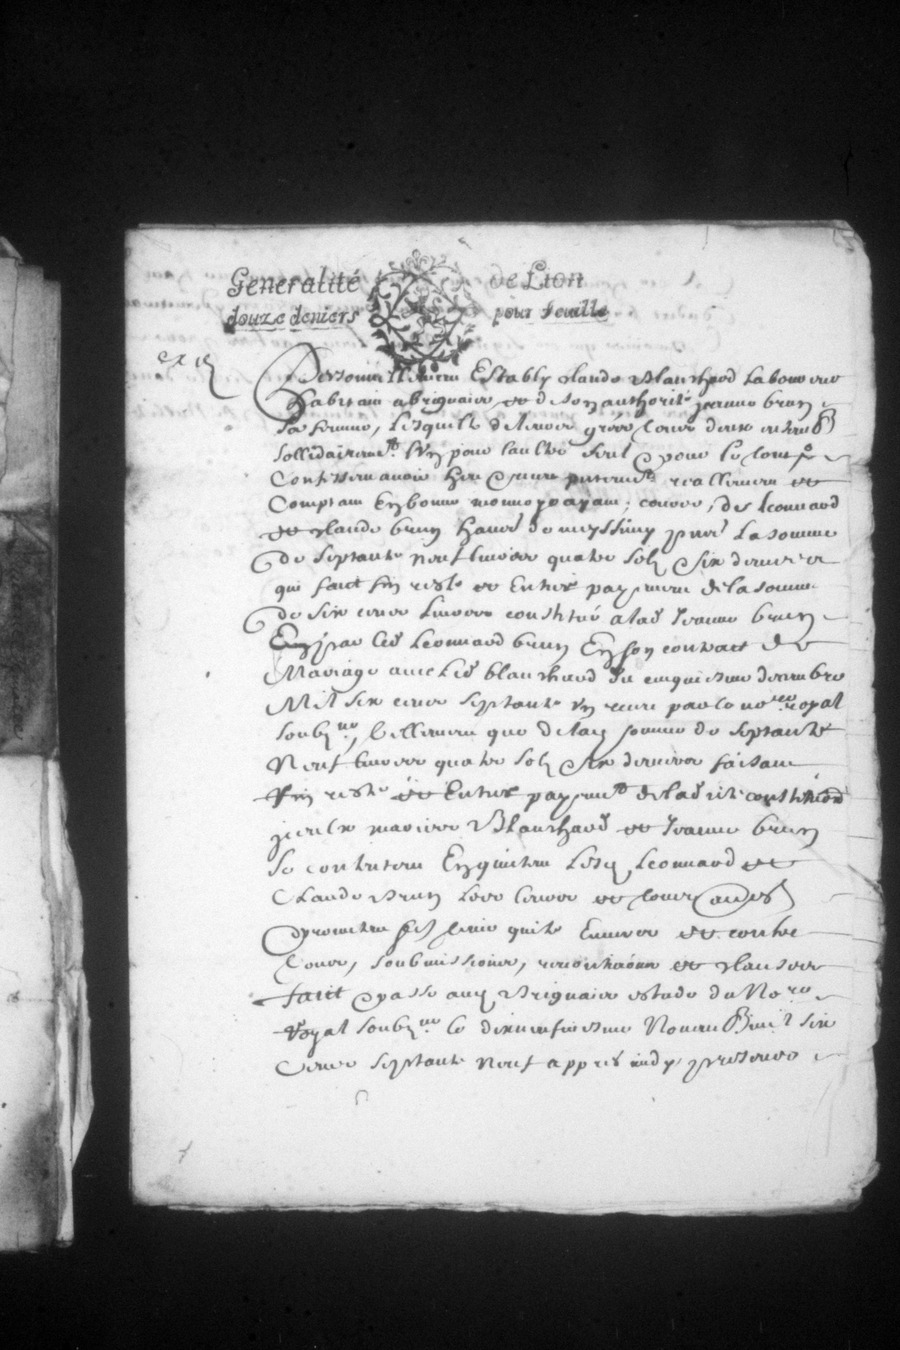 Generalité de Lion
douze deniers pour feuille
Personnellement Estably Claude Blanchard Laboureur
habitant a brignaiz et de son authorité jeanne brun
sa femme, Lesquels de leurs grées leurs deux ensemb
sollidairement l'un pour l'aultre seul & pour le tout
Confessent avoir heu & receu présentemt reallement et
Comptant En bonne monnoye ayant cours, des Leonnard
et Claude brun La somme
de septante neuf livres quatre solz & six deniers
qui faict fin reste et Entier payement de la somme
de six cens Livres constitué a lad Jeanne brun
par led Leonnard brun En son contract de
Mariage avec led blanchard du cinquiesme decembre
Mil six cens septante un receu par le noere royal
soubzne, tellement que de lad somme de septante
Neuf livres quatre solz & six deniers faisant
fin reste et Entier payemt de lad constitution
Blanchard et Jeanne brun
Se contentent En quittent Lesd Leonnard et
Claude Brun
& promettent quite Envers et contre
tous, soubmissions, renonciaons et clauses
faict & passé aud Brignaiz estude du Nore
Royal soubzne le dixneufiesme Novemb mil six
Cens septante neuf appres midy presence